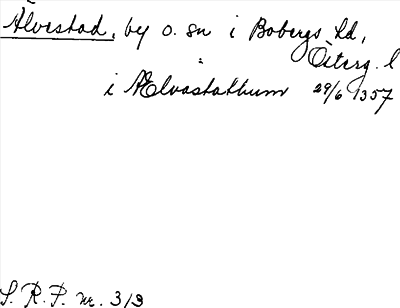 Älvestad, by o. sn i Bobergs hd,
Österg. l
i Ælvastathum 29/6 1357
S. R. P. nr. 319